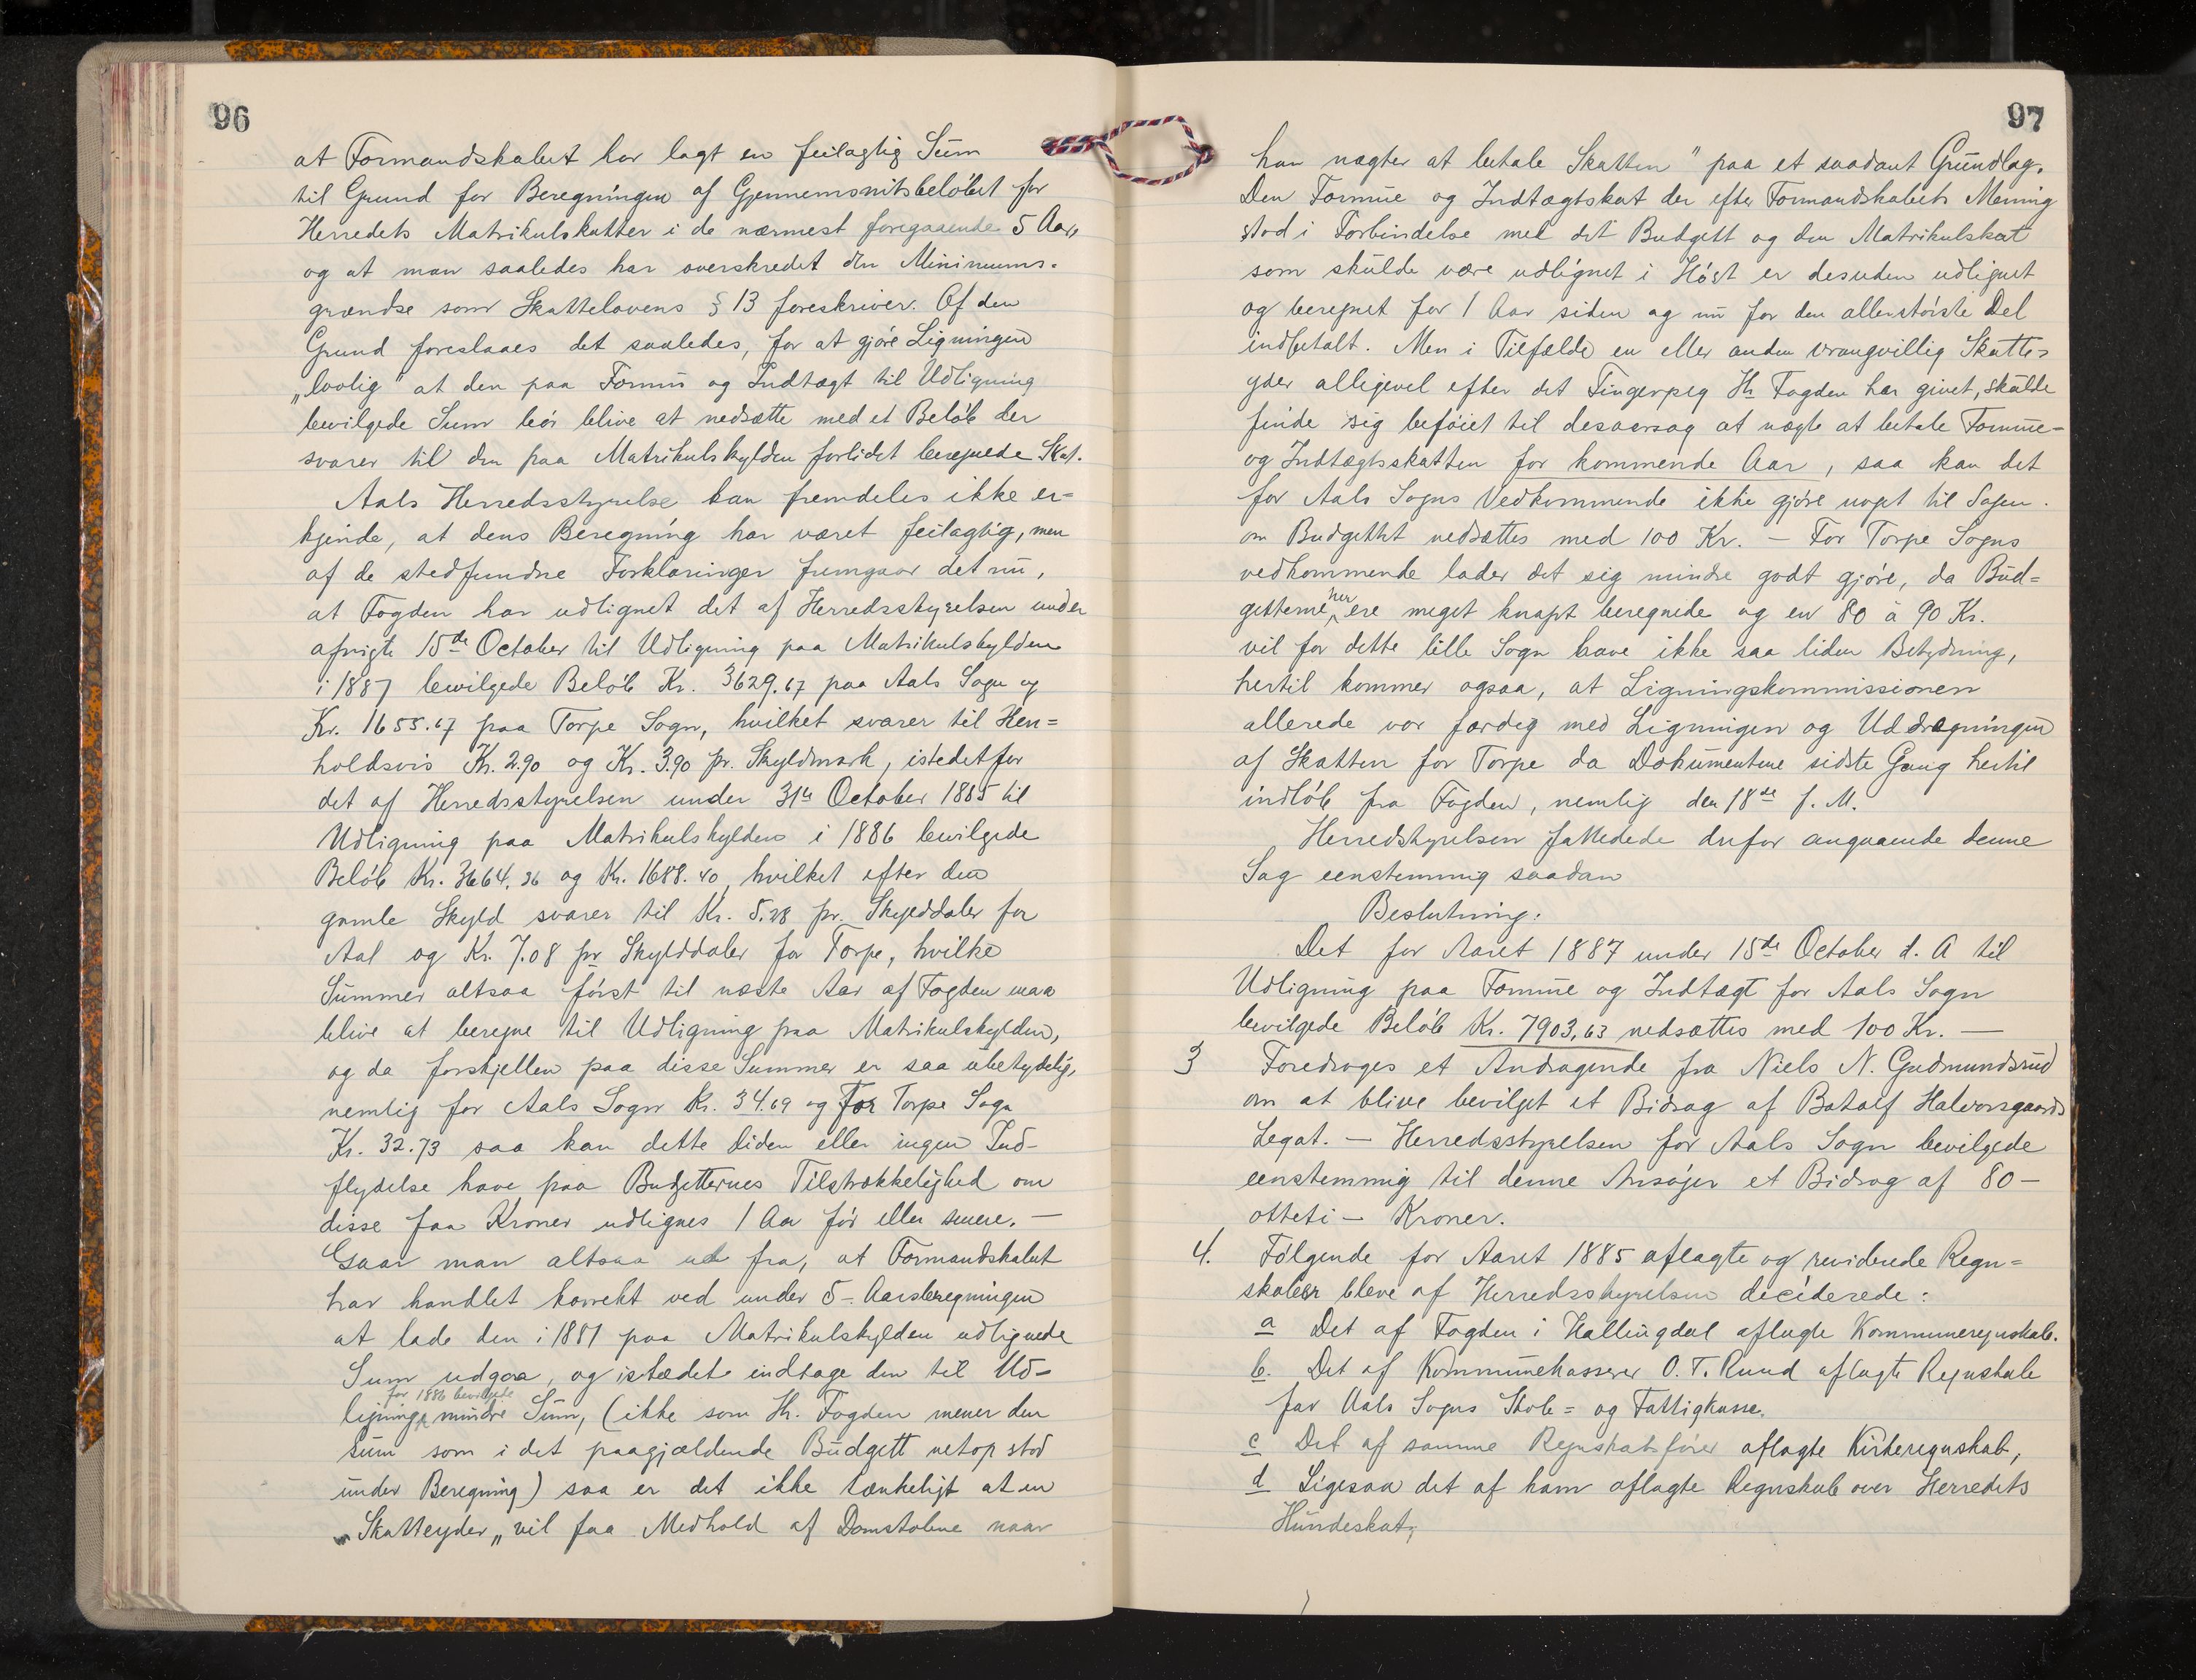 96
at Formandskabet har lagt en feilagtig Sum
til Grund for Beregningen af Gjennemsnitsbeløbet for
Herredets Matrikulskatter i de nærmest foregaaende 5 Aar,
og at man saaledes har overskredet den Minimums-
grændse som Skattelovens § 13 foreskriver. Af den
Grund foreslaaes det saaledes, for at gjøre Ligningen
„lovlig" at den paa Formue og Indtægt til Udligning
bevilgede Sum bør blive at nedsætte med et Beløb der
svarer til den paa Matrikulskylden forlidet beregnede Skat.
Aals Herredsstyrelse kan fremdeles ikke er=
kjende, at dens Beregning har været feilagtig, men
af de stedfundne Forklaringer fremgaar det nu,
at Fogden har udlignet det af Herredsstyrelsen under
afvigte 15de October til Udligning paa Matrikulskylden
i 1887 bevilgede Beløb Kr. 3629.67 paa Aals Sogn og
Kr. 1655.67 paa Torpe Sogn, hvilket svarer til Hen=
holdsvis Kr. 2.90 og Kr. 3.90 pr. Skyldmark, istedetfor
det af Herredsstyrelsen under 31te October 1885 til
Udligning paa Matrikulskylden i 1886 bevilgede
Beløb Kr. 3664.36 og Kr. 1688.40, hvilket efter den
gamle Skyld svarer til Kr. 5.28 pr. Skylddaler for
Aal og Kr. 7.08 pr Skylddaler for Torpe, hvilke
Summer altsaa først til næste Aar af Fogden maa
blive at beregne til Udligning paa Matrikulskylden,
og da forskjellen paa disse Summer er saa ubetydelig,
nemlig for Aals Sogn Kr. 34.69 og for Torpe Sogn
Kr. 32.73 saa kan dette liden eller ingen Ind-
flydelse have paa Budgetternes Tilstrækkelighed om
disse faa Kroner udlignes 1 Aar før eller senere. —
Gaar man altsaa ud fra, at Formandskabet
har handlet korrekt ved under 5-Aarsberegningen
at lade den i 1881 paa Matrikulskylden udlignede
Sum udgaa, og istædet indtage den til Ud-
for 1886 bevilgede
ligning mindre Sum, (ikke som Hr. Fogden mener den
sum som i det paagjældende Budgett netop stod
under Beregning) saa er det ikke tænkeligt at en
„Skatteyder„ vil faa Medhold af Domstolene naar
97
han nægter at betale Skatten " paa et saadant Grundlag.
Den Formue og Indtægtskat der efter Formandskabets Mening
stod i Forbindelse med det Budgett og den Matrikulskat
som skulde være udlignet i Høst er desuden udlignet
og beregnet for 1 Aar siden og nu for den allerstørste Del
indbetalt. Men i Tilfælde en eller anden vrangvillig Skatte=
yder alligevel efter det Fingerpeg Hr Fogden har givet, skulde
finde sig beføiet til desaarsag at nægte at betale Formue=
og Indtægtsskatten for kommende Aar, saa kan det
for Aals Sogns Vedkommende ikke gjøre noget til Sagen
om Budgettet nedsættes med 100 Kr. — For Torpe Sogns
vedkommende lader det sig mindre godt gjøre, da Bud=
her
getterne ere meget knapt beregnede og en 80 à 90 Kr.
vil for dette lille Sogn have ikke saa liden Betydning,
hertil kommer ogsaa, at Ligningskommissionen
allerede var færdig med Ligningen og Uddragningen
af Skatten for Torpe da Dokumenterne sidste Gang hertil
indløb fra Fogden, nemlig den 18de f. M.
Herredstyrelsen fattede derfor angaaende denne
Sag eenstemmig saadan
Beslutning:
Det for Aaret 1887 under 15de October d. A til
Udligning paa Formue og Indtægt for Aals Sogn
bevilgede Beløb Kr. 7903,63 nedsættes med 100 Kr. —
3 Foredroges et Andragende fra Niels N. Gudmundsrud
om at blive bevilget et Bidrag af Botolf Halvorsgaards
Legat. — Herredsstyrelsen for Aals Sogn bevilgede
eenstemmig til denne Ansøger et Bidrag af 80 —
otteti — Kroner.
4. Følgende for Aaret 1885 aflagte og reviderede Regn=
skaber bleve af Herredsstyrelsen deciderede:
a Det af Fogden i Hallingdal aflagte Kommuneregnskab.
b. Det af Kommunekasserer O. T. Ruud aflagte Regnskab
for Aals Sogns Skole= og Fattigkasse.
c Det af samme Regnskabsfører aflagte Kirkeregnskab,
d Ligesaa det af ham aflagte Regnskab over Herredets
Hundeskat,